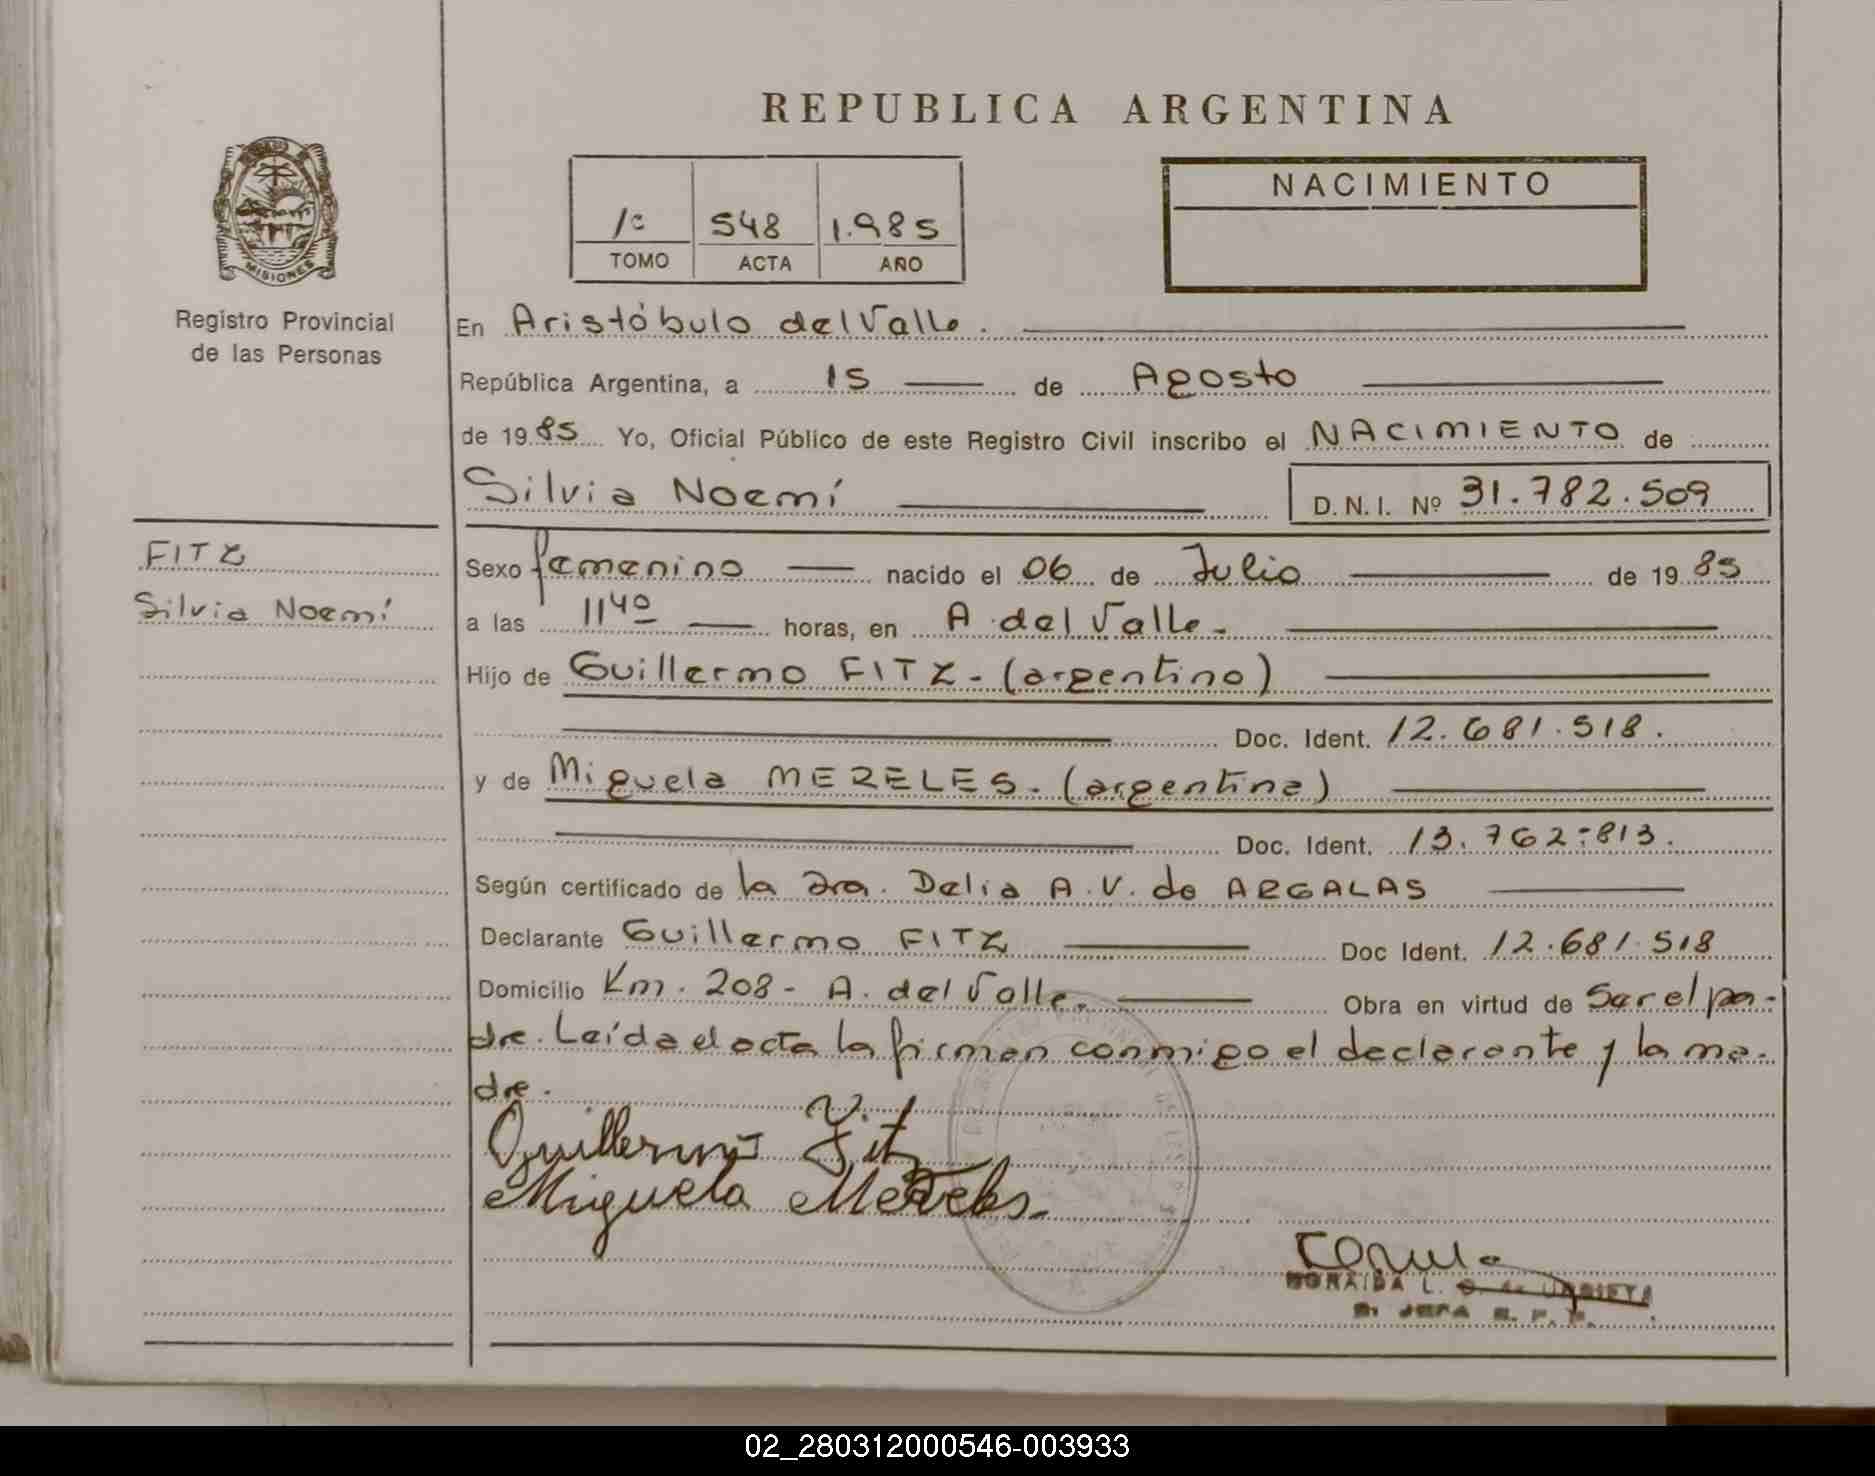 REPUBLICA ARGENTINA
MISIONES
Registro Provincial
de las Personas
1c 548 1.985
TOMO ACTA AÑO
NACIMIENTO
En Aristóbulo del Valle.
República Argentina, a 15 de Agosto
de 1985 Yo, Oficial Público de este Registro Civil inscribo el NACIMIENTO de
Silvia Noemí D.N.I. Nº 31.782.509
FITZ
Silvia Noemí
Sexo femenino nacido el 06 de Julio de 1985
a las 11 40 horas, en A. del Valle.
Hijo de Guillermo FITZ - (argentino)
Doc. Ident. 12.681.518.
y de Miguela MERELES. (argentina)
Doc. Ident. 13.762.813.
Según certificado de la Dra. Delia A.V. de ARGALAS
Declarante Guillermo FITZ Doc Ident. 12.681.518
Domicilio Km. 208 - A. del Valle. Obra en virtud de Ser el pa-
dre. Leída el acta la firman conmigo el declarante y la ma-
dre.
Guillermo Fitz
Miguela Mereles.
L. S. de URRIETA
JEFA R. P. P.
02_280312000546-003933